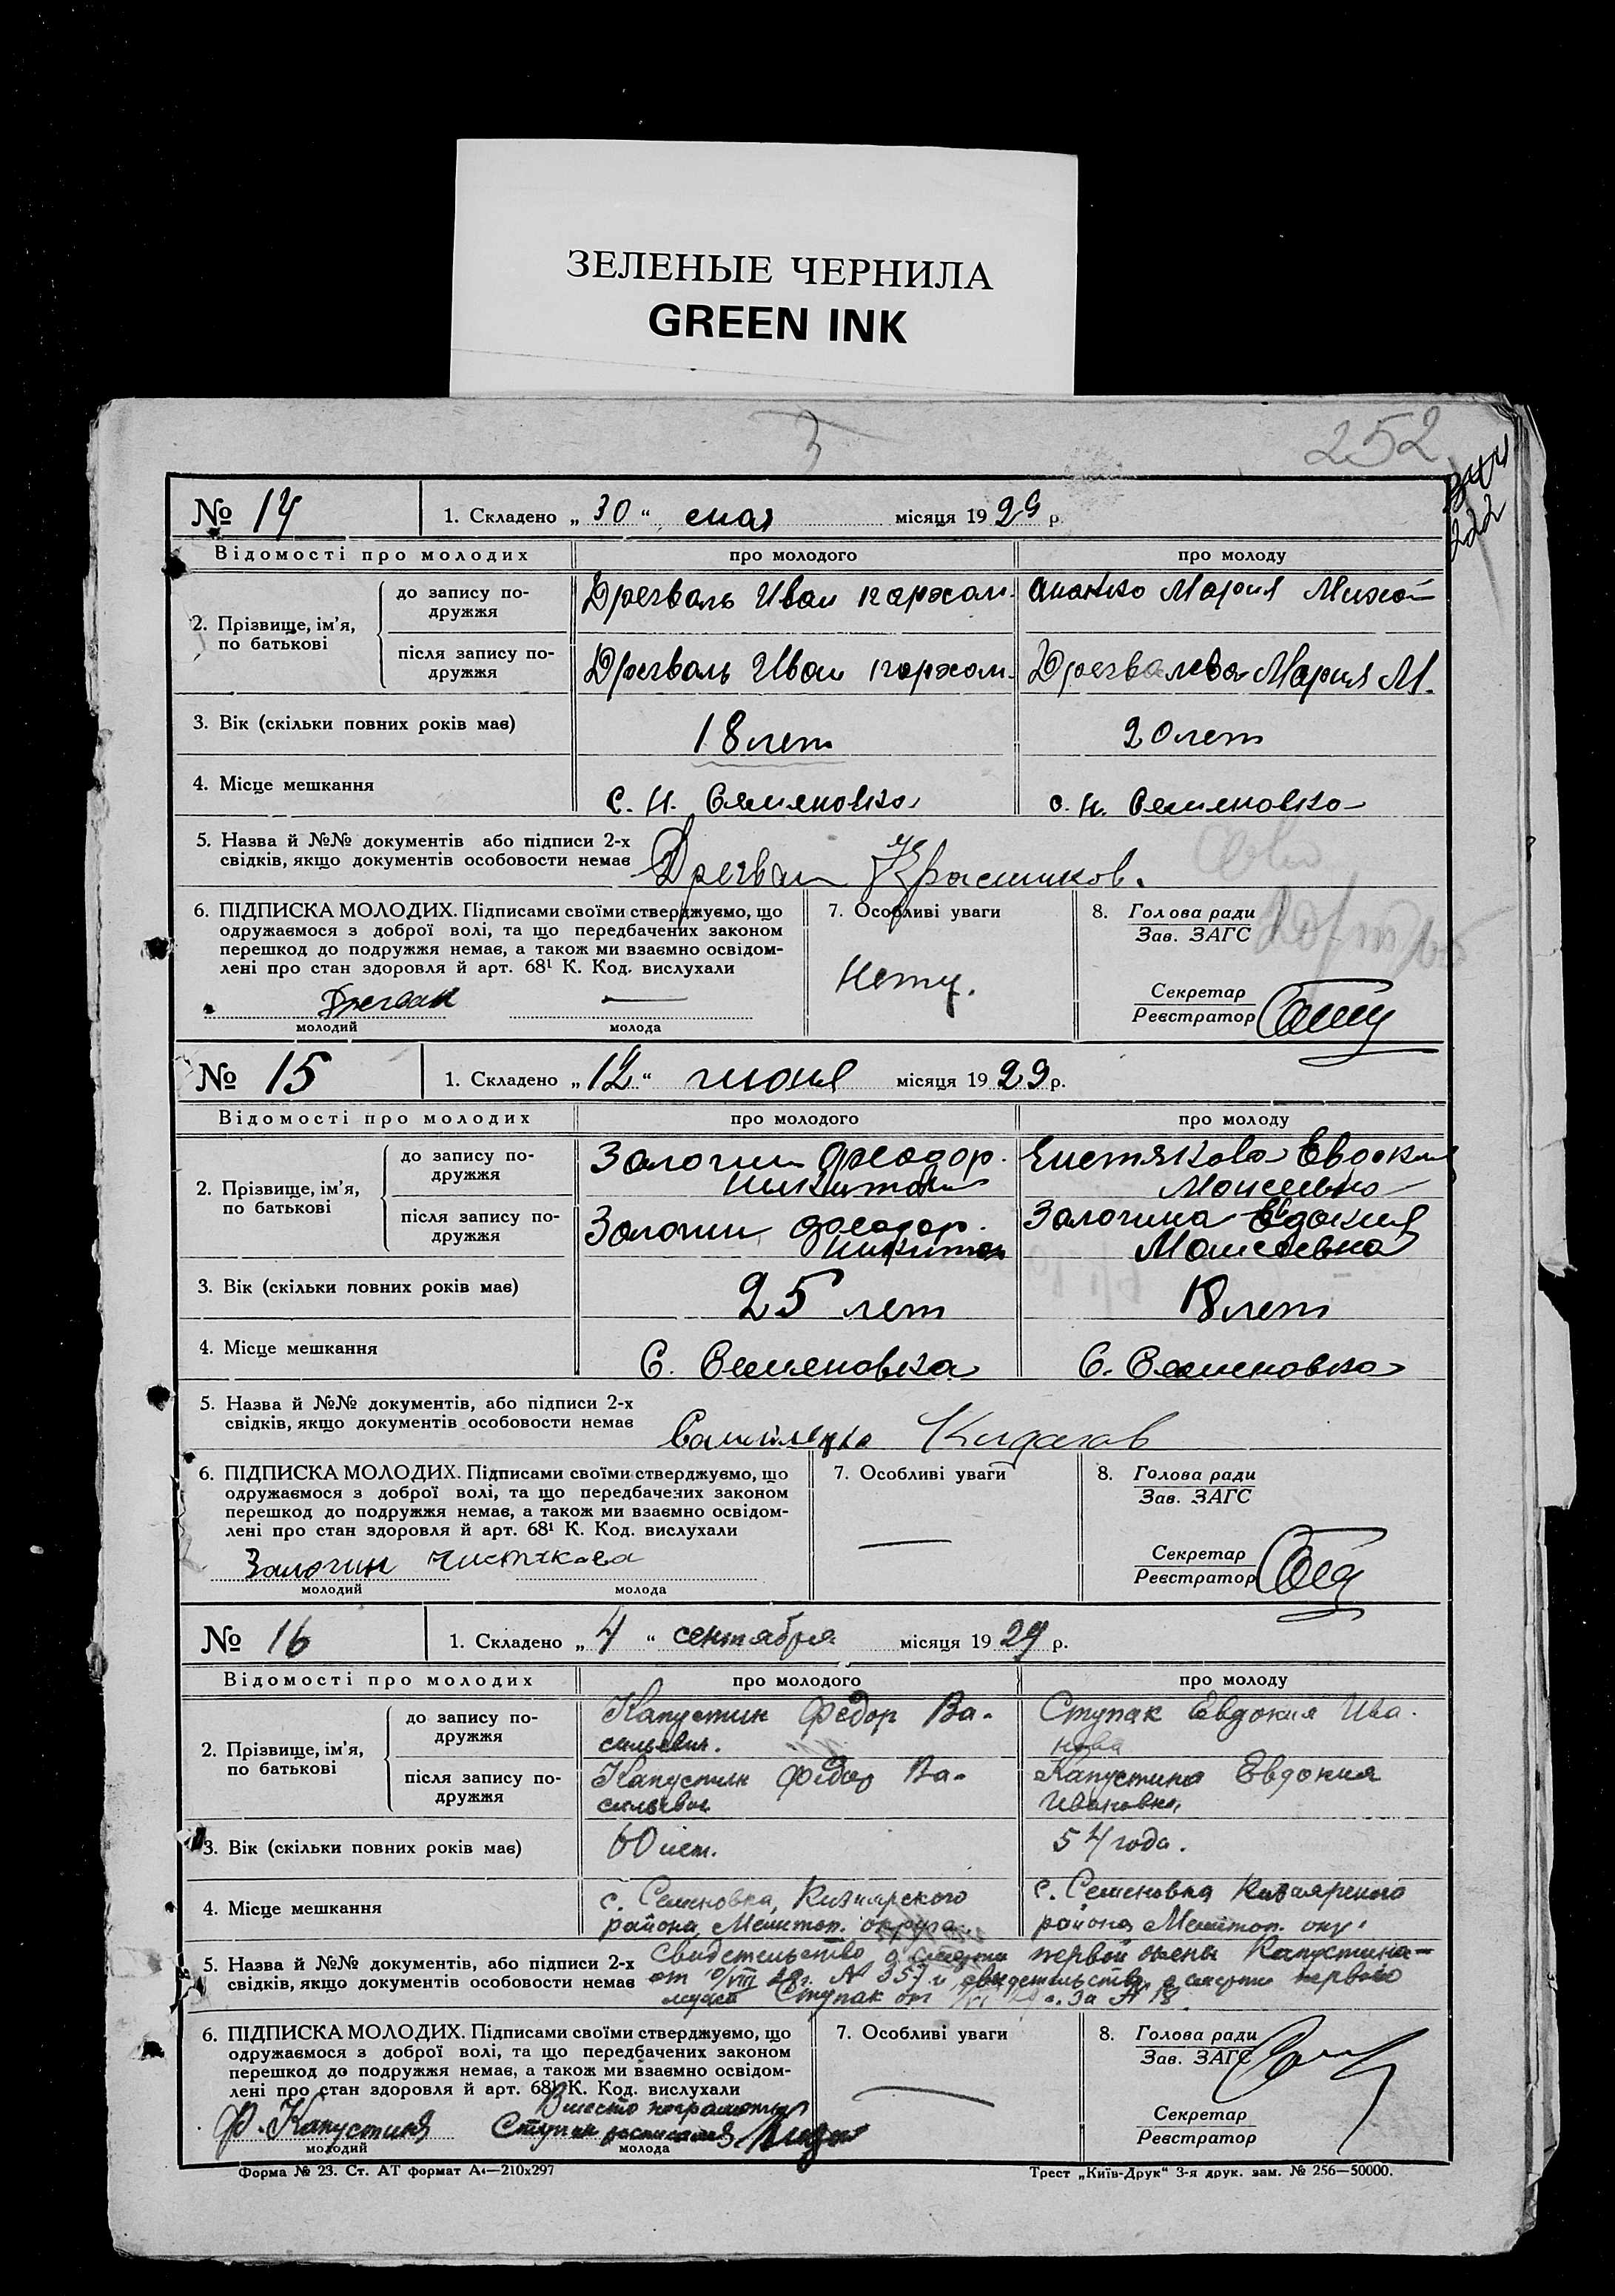 ЗЕЛЕНЫЕ ЧЕРНИЛА
GREEN INK
252
222
№ 14
1. Складено „ 30 “ мая місяця 1929 р.
Відомості про молодих
про молодого
про молоду
2. Прізвище, ім’я, по батькові
до запису подружжя
Дрегваль Иван
Мария
після запису подружжя
Дрегваль Иван
Дрегвалева Мария М.
3. Вік (скільки повних років має)
18 лет
20 лет
4. Місце мешкання
с. Н. Семеновка
с. Н. Семеновка
5. Назва й №№ документів або підписи 2-х
свідків, якщо документів особовости немає
Красников.
6. ПІДПИСКА МОЛОДИХ. Підписами своїми стверджуємо, що
одружаємося з доброї волі, та що передбачених законом
перешкод до подружжя немає, а також ми взаємно освідом-
лені про стан здоровля й арт. 68¹ К. Код. вислухали
молодий
молода
7. Особливі уваги
Нету.
8. Голова ради
Зав. ЗАГС
Секретар
Реєстратор
№ 15
1. Складено „ 12 “ июня місяця 1929 р.
Відомості про молодих
про молодого
про молоду
2. Прізвище, ім’я, по батькові
до запису подружжя
Залогин Феодор
Чистякова Евдокия
Моисеевна
після запису подружжя
Залогин Феодор
Залогина Евдокия
Моисеевна
3. Вік (скільки повних років має)
25 лет
18 лет
4. Місце мешкання
С. Семеновка
С. Семеновка
5. Назва й №№ документів, або підписи 2-х
свідків, якщо документів особовости немає
6. ПІДПИСКА МОЛОДИХ. Підписами своїми стверджуємо, що
одружаємося з доброї волі, та що передбачених законом
перешкод до подружжя немає, а також ми взаємно освідом-
лені про стан здоровля й арт. 68¹ К. Код. вислухали
Залогин Чистякова
молодий
молода
7. Особливі уваги
8. Голова ради
Зав. ЗАГС
Секретар
Реєстратор
№ 16
1. Складено „ 4 “ сентября місяця 1929 р.
Відомості про молодих
про молодого
про молоду
2. Прізвище, ім’я, по батькові
до запису подружжя
Капустин Федор Ва-
сильевич.
Ступак Евдокия Ива
після запису подружжя
Капустин Федор Ва-
Капустина Евдокия
Ивановна
3. Вік (скільки повних років має)
60 лет.
54 года.
4. Місце мешкання
с. Семеновка, Кизиярского
района, Мелитоп. округа.
с. Семеновка Кизиярского
района Мелитоп. окру.
5. Назва й №№ документів, або підписи 2-х
свідків, якщо документів особовости немає
Свидетельство о смерти первой жены Капустина
от № 357 и свидетельство о смерти первого
мужа Ступак от за № 18.
6. ПІДПИСКА МОЛОДИХ. Підписами своїми стверджуємо, що
одружаємося з доброї волі, та що передбачених законом
перешкод до подружжя немає, а також ми взаємно освідом-
лені про стан здоровля й арт. 68¹ К. Код. вислухали
Вместо неграмотной
Ф. Капустин
Ступак расписался
молодий
молода
7. Особливі уваги
8. Голова ради
Зав. ЗАГС
Секретар
Реєстратор
Форма № 23. Ст. АТ формат А4—210х297
Трест „Київ-Друк“ 3-я друк. зам. № 256—50000.